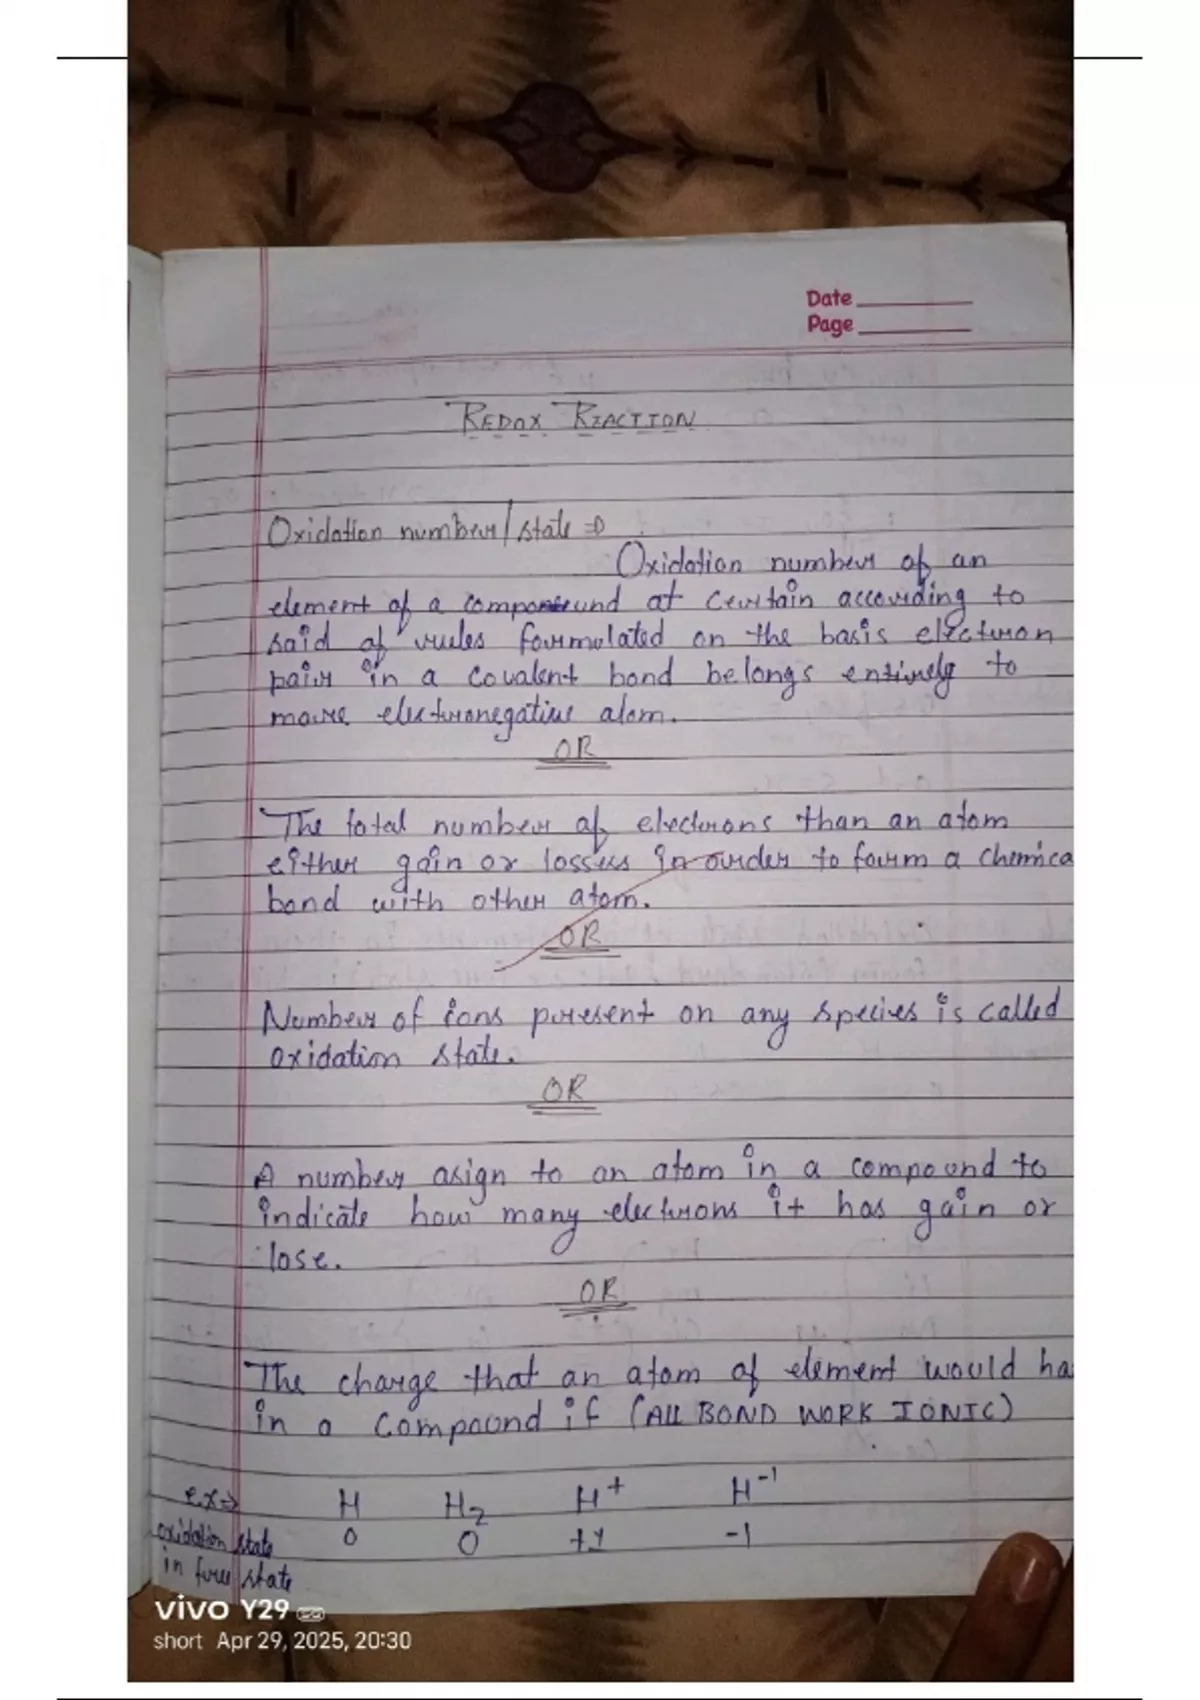 Date
Page
REDOX REACTION
Oxidation number/state ⇒
Oxidation number of an
element of a compound at certain according to
said of rules formulated on the basis electron
pair in a covalent bond belongs entirely to
more electronegative atom.
OR
The total number of electrons than an atom
either gain or losses in order to form a chemica
bond with other atom.
OR
Number of ions present on any species is called
oxidation state.
OR
A number asign to an atom in a compound to
indicate how many electrons it has gain or
lose.
OR
The charge that an atom of element would ha
in a compound if (ALL BOND WORK IONIC)
ex⇒ H H₂ H⁺ H⁻¹
oxidation state 0 0 +1 -1
in free state
vivo Y29
short Apr 29, 2025, 20:30